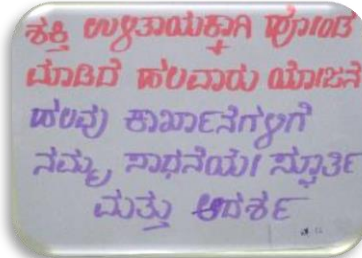 ಶಕ್ತಿ ಉಳಿತಾಯಕ್ಕಾಗಿ ಹೊಂಡ
ಮಾಡಿದೆ ಹಲವಾರು ಯೋಜನೆ
ಹಲವು ಕಾರ್ಖಾನೆಗಳಿಗೆ
ನಮ್ಮ ಸಾಧನೆಯೇ ಸ್ಫೂರ್ತಿ
ಮತ್ತು ಆದರ್ಶ